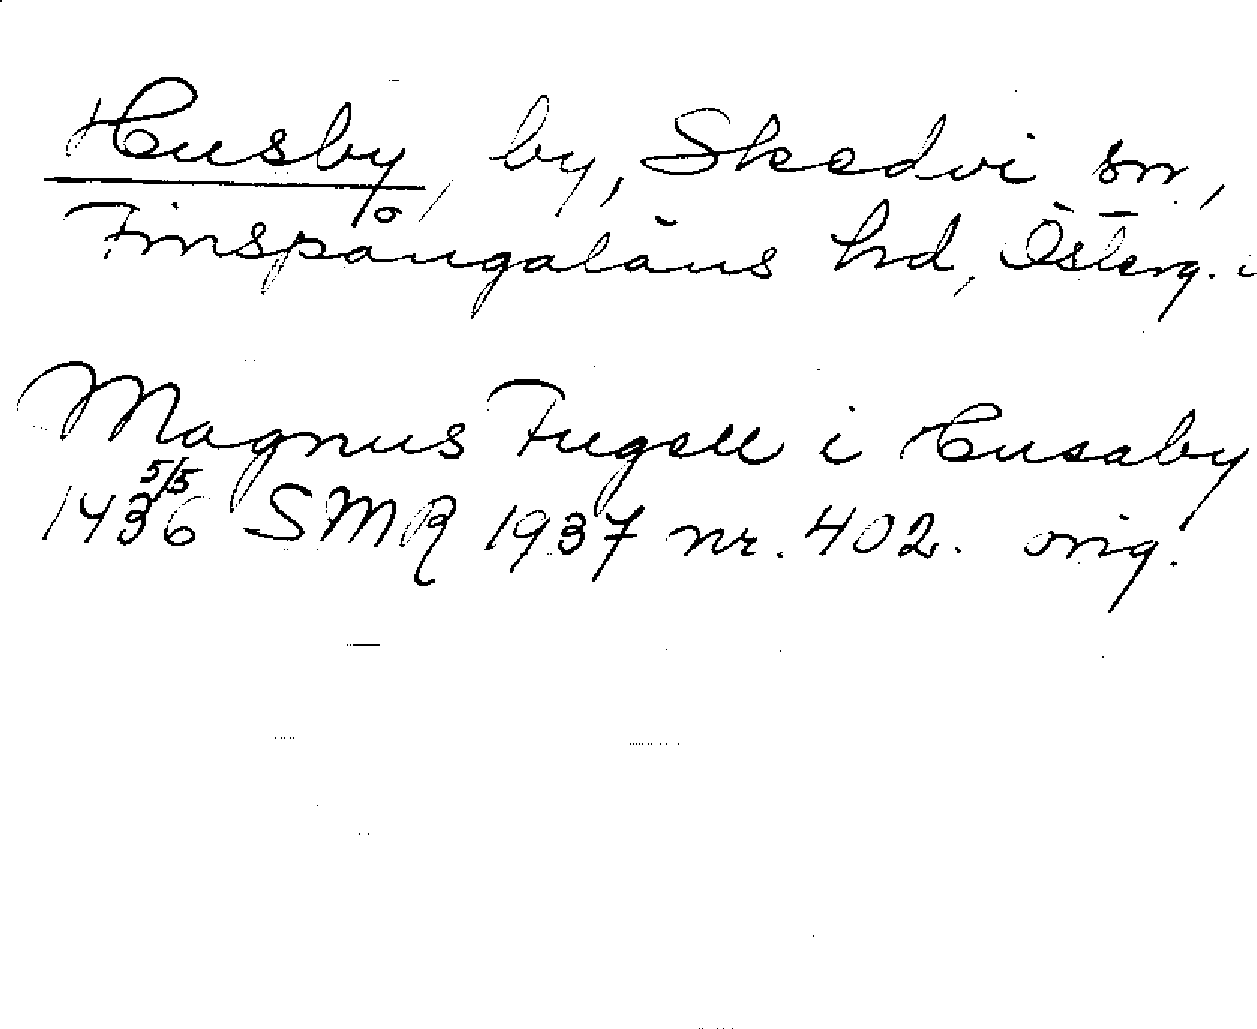 Husby, by, Skedvi sn,
Finspångaläns hd, Österg. l
Magnus Fugell i Husaby
5/5
1436 SMR 1937 nr. 402. orig.